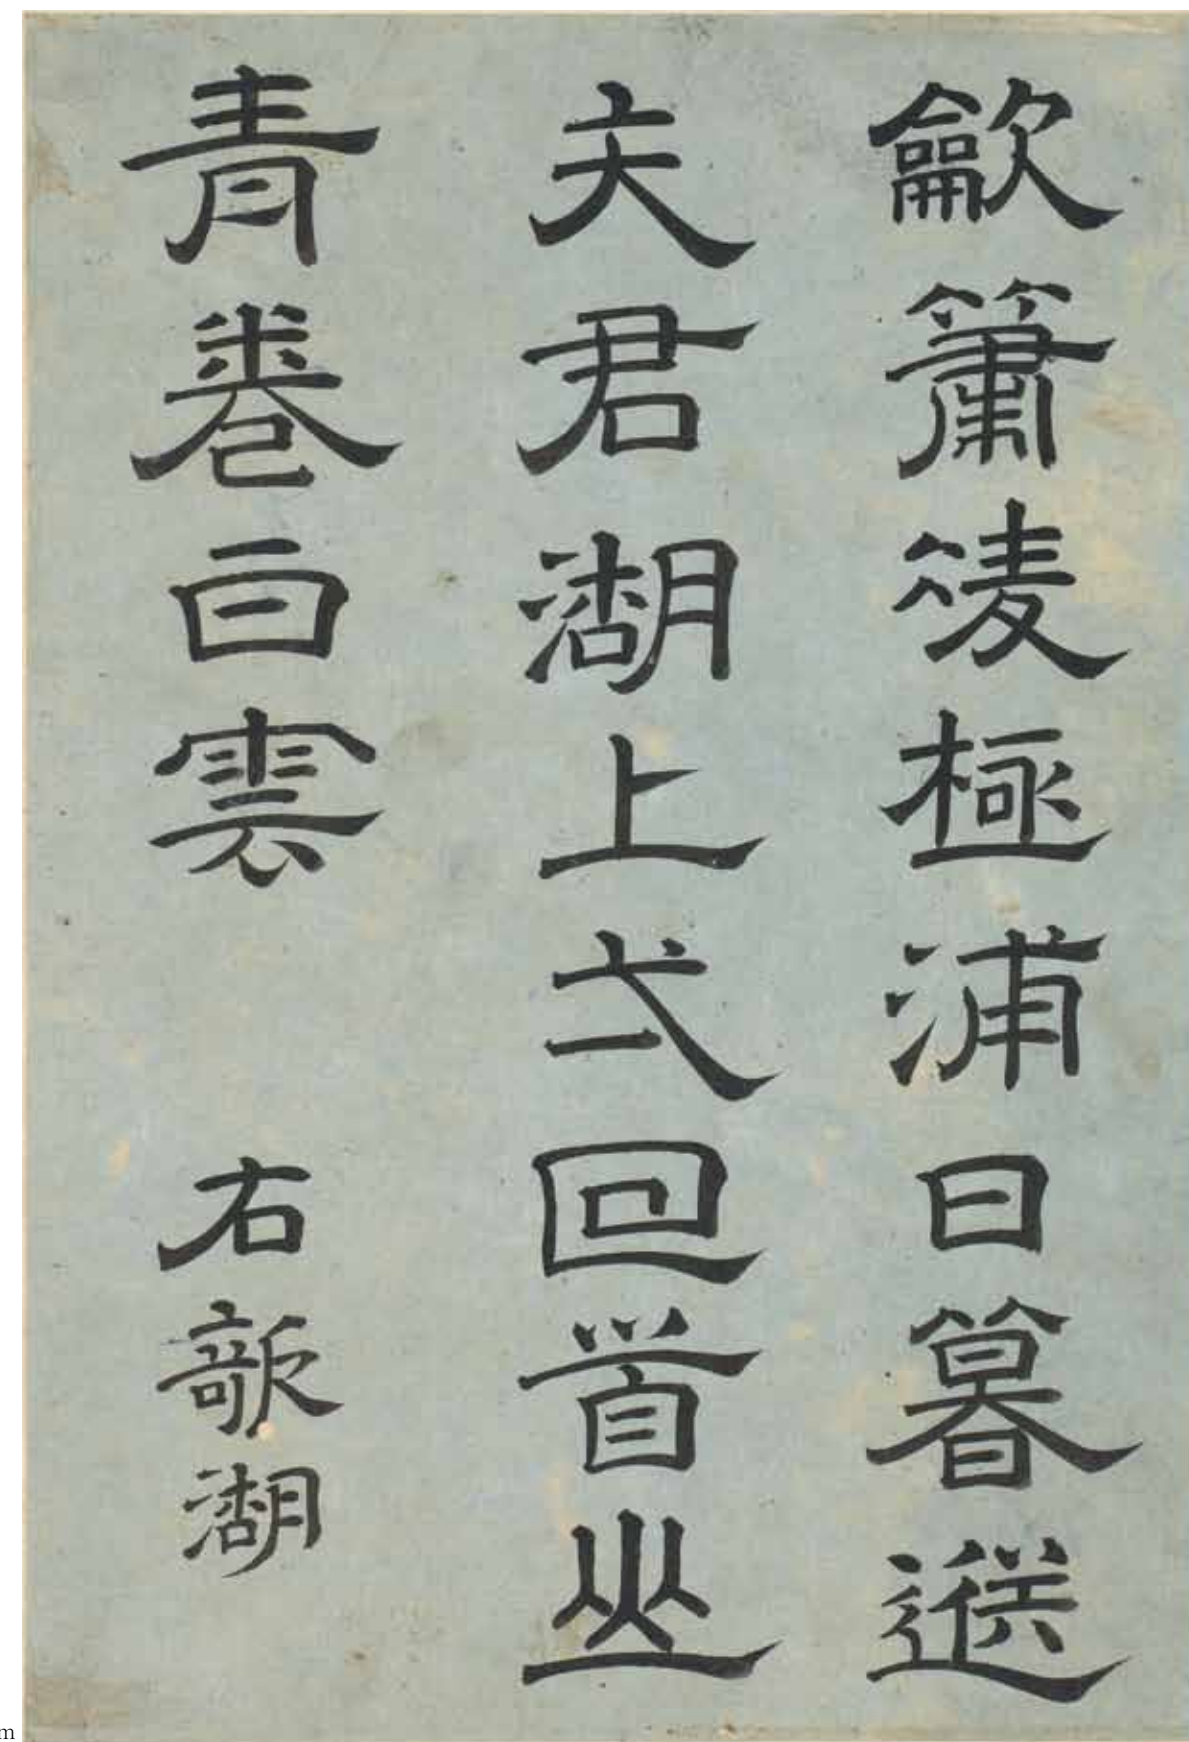 龡簫凌極浦日暮送
夫君湖上弌回首山
青卷白雲 右欹湖
m